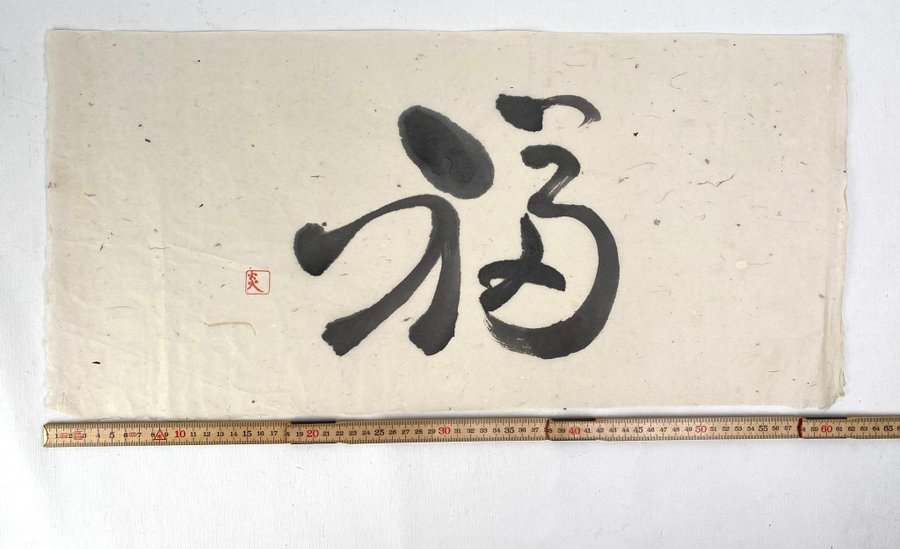 福
炎
1 2 3 4 5 6 7 8 9 10 11 12 13 14 15 16 17 18 19 20 21 22 23 24 25 26 27 28 29 30 31 32 33 34 35 36 37 38 39 40 41 42 43 44 45 46 47 48 49 50 51 52 53 54 55 56 57 58 59 60 61 62 63 64 65